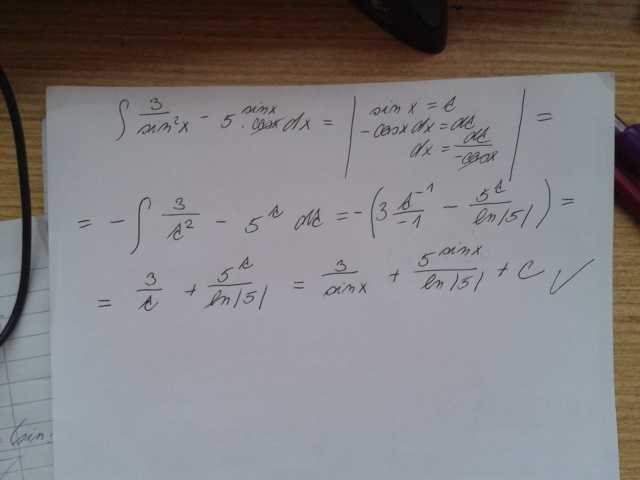 ∫ 3/sin²x - 5^sinx · cosx dx = | sin x = t
-cosx dx = dt
dx = dt/-cosx | =
= - ∫ 3/t² - 5^t dt = - (3 t^-1/-1 - 5^t/ln|5|) =
= 3/t + 5^t/ln|5| = 3/sinx + 5^sinx/ln|5| + C ✓
(sin